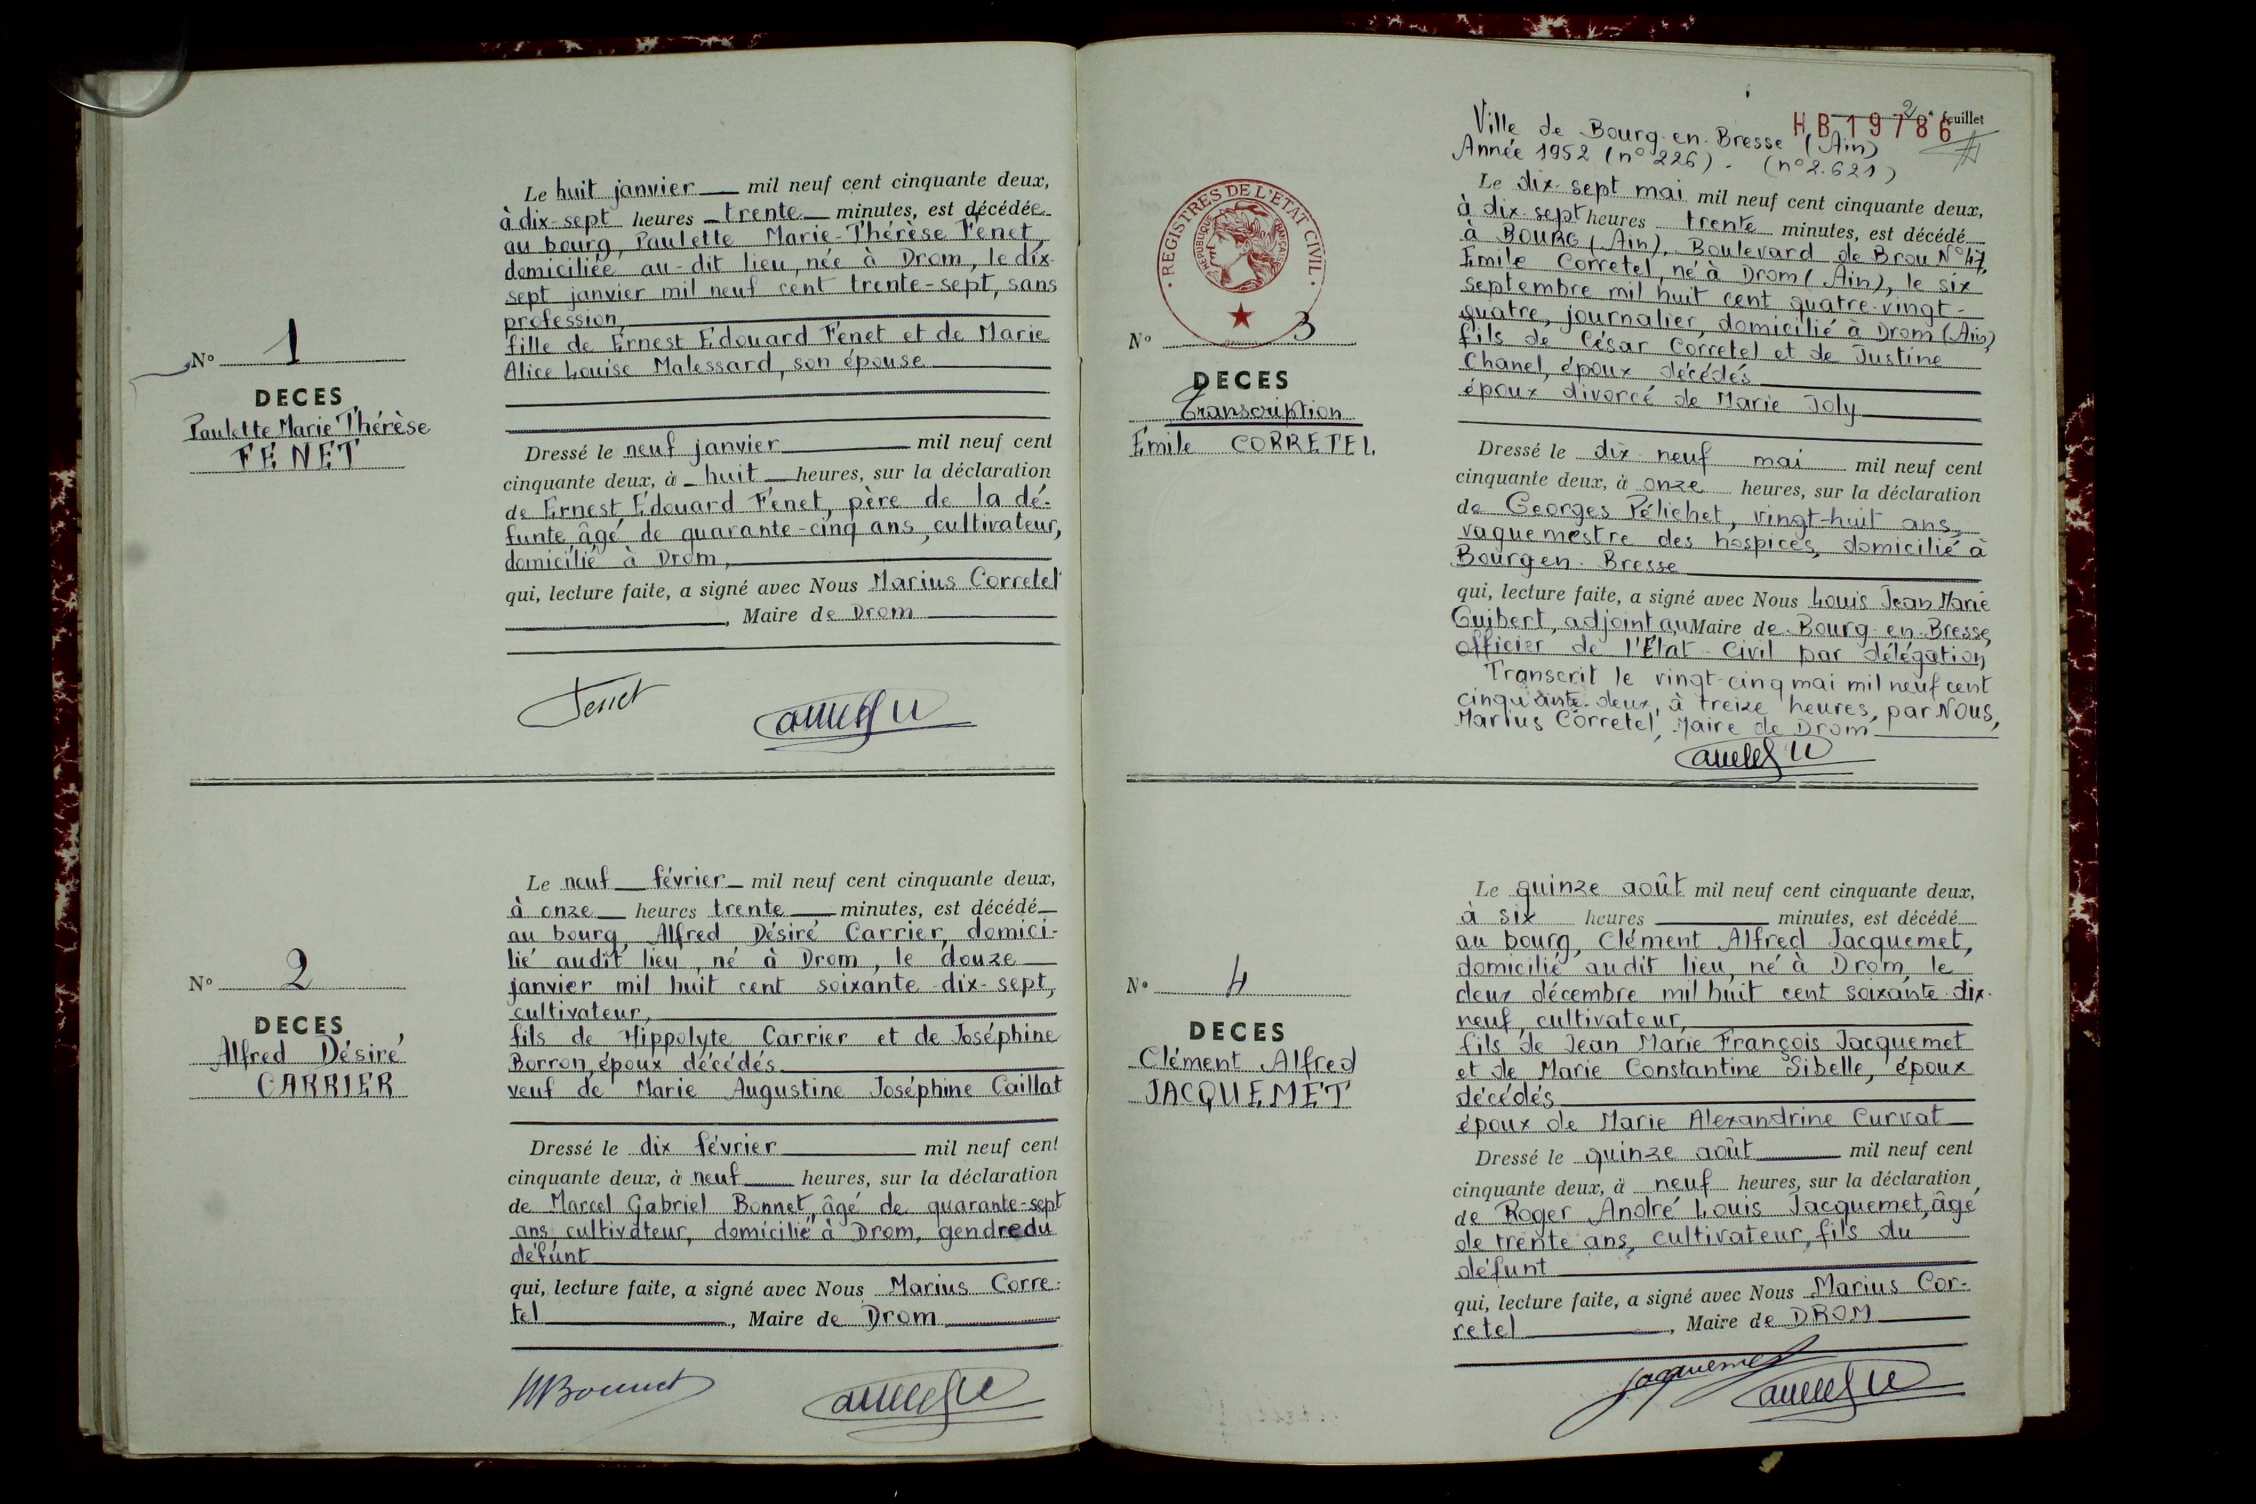 Le huit janvier mil neuf cent cinquante deux,
à dix-sept heures trente minutes, est décédée
au bourg, Paulette Marie-Thérèse Fenet,
domiciliée au-dit lieu, née à Drom, le dix-
sept janvier mil neuf cent trente-sept, sans
profession,
fille de Ernest Edouard Fenet et de Marie
Alice Louise Malessard, son épouse
N° 1
DECES
Paulette Marie Thérèse
FENET
Dressé le neuf janvier mil neuf cent
cinquante deux, à huit heures, sur la déclaration
de Ernest Edouard Fenet, père de la dé-
funte, âgé de quarante-cinq ans, cultivateur,
domicilié à Drom,
qui, lecture faite, a signé avec Nous Marius Corretel
, Maire de Drom
Fenet
N° 2
DECES
Alfred Désiré
CARRIER
Le neuf février mil neuf cent cinquante deux,
à onze heures trente minutes, est décédé
au bourg, Alfred Désiré Carrier, domici-
lié audit lieu, né à Drom, le douze
janvier mil huit cent soixante-dix-sept,
cultivateur,
fils de Hippolyte Carrier et de Joséphine
Borron, époux décédés
veuf de Marie Augustine Joséphine Caillat
Dressé le dix février mil neuf cent
cinquante deux, à neuf heures, sur la déclaration
de Marcel Gabriel Bonnet, âgé de quarante-sept
ans, cultivateur, domicilié à Drom, gendre du
défunt
qui, lecture faite, a signé avec Nous Marius Corre-
tel, Maire de Drom
MBonnet
2e feuillet
HB19786
Ville de Bourg-en-Bresse (Ain)
Année 1952 (n° 226) - (n° 2.621)
REGISTRES DE L'ETAT CIVIL
REPUBLIQUE FRANÇAISE
N° 3
DECES
Transcription
Emile CORRETEL
Le dix-sept mai mil neuf cent cinquante deux,
à dix-sept heures trente minutes, est décédé
à BOURG (Ain), Boulevard de Brou N° 47,
Emile Corretel, né à Drom (Ain), le six
septembre mil huit cent quatre-vingt-
quatre, journalier, domicilié à Drom (Ain),
fils de César Corretel et de Justine
Chanel, époux décédés
époux divorcé de Marie Joly
Dressé le dix-neuf mai mil neuf cent
cinquante deux, à onze heures, sur la déclaration
de Georges Pélichet, vingt-huit ans,
vaguemestre des hospices, domicilié à
Bourg en-Bresse
qui, lecture faite, a signé avec Nous Louis Jean Marie
Guibert, adjoint au Maire de Bourg-en-Bresse,
officier de l'Etat-Civil par délégation,
Transcrit le vingt-cinq mai mil neuf cent
cinquante-deux, à treize heures, par NOUS,
Marius Corretel, Maire de Drom
N° 4
DECES
Clément Alfred
JACQUEMET
Le quinze août mil neuf cent cinquante deux,
à six heures minutes, est décédé
au bourg, Clément Alfred Jacquemet,
domicilié audit lieu, né à Drom, le
deux décembre mil huit cent soixante-dix-
neuf, cultivateur,
fils de Jean Marie François Jacquemet
et de Marie Constantine Sibelle, époux
décédés
époux de Marie Alexandrine Curvat
Dressé le quinze août mil neuf cent
cinquante deux, à neuf heures, sur la déclaration
de Roger André Louis Jacquemet, âgé
de trente ans, cultivateur, fils du
défunt
qui, lecture faite, a signé avec Nous Marius Cor-
retel, Maire de DROM
Jacquemet